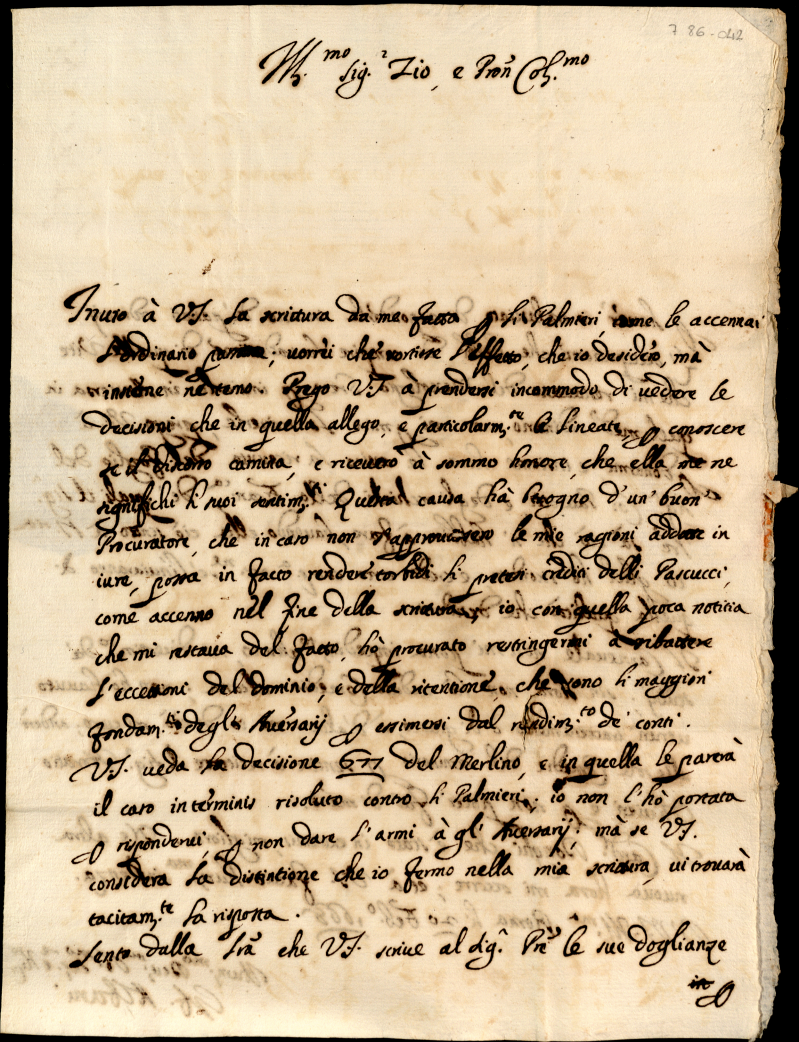 7 86-042
Ill.mo Sig.r Zio, e Pron Col.mo
Inuio à V.S. la scrittura da me fatta p li Palmieri come le accennai
l'ordinario passato; uorrei che sortisse l'effetto, che io desidero, mà
insieme nè temo. Prego V.S. à prendersi incommodo di uedere le
decisioni che in quella allego, e particolarm.te le lineate, p conoscere
se il discorso camina, e riceuerò à sommo honore, che ella me ne
significhi li suoi sentim.ti Questa causa hà bisogno d'un buon
Procuratore, che in caso non s'approuassero le mie ragioni addotte in
iure, possa in facto rendere torbidi li pretesi crediti delli Pascucci,
come accenno nel fine della scrittura; io con quella poca notitia
che mi restaua del fatto, hò procurato restringermi à ribattere
l'eccettioni del dominio, e della ritentione, che sono li maggiori
fondam.ti degli Auersarij p essimersi dal rendim.to de' conti.
V.S. ueda la decisione 677 del Merlino, e in quella le parerà
il caso in terminis risoluto contro li Palmieri; io non l'hò portata
p risponderui, p non dare l'armi à gl' Auersarij; mà se V.S.
considera la distintione che io fermo nella mia scrittura, ui trouarà
tacitam.te la risposta.
Sento dalla lrã che V.S. scriue al Sig.r Pre le sue doglianze
p